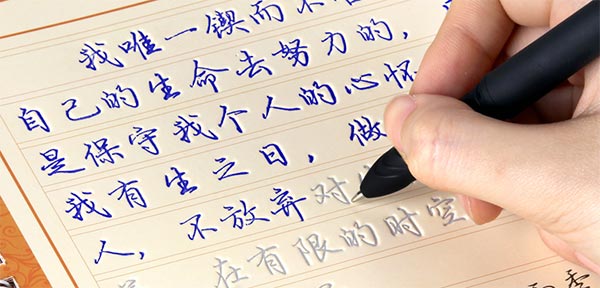 我唯一锲而不
自己的生命去努力的，
是保守我个人的心怀
我有生之日，做
人，不放弃对
在有限的时空